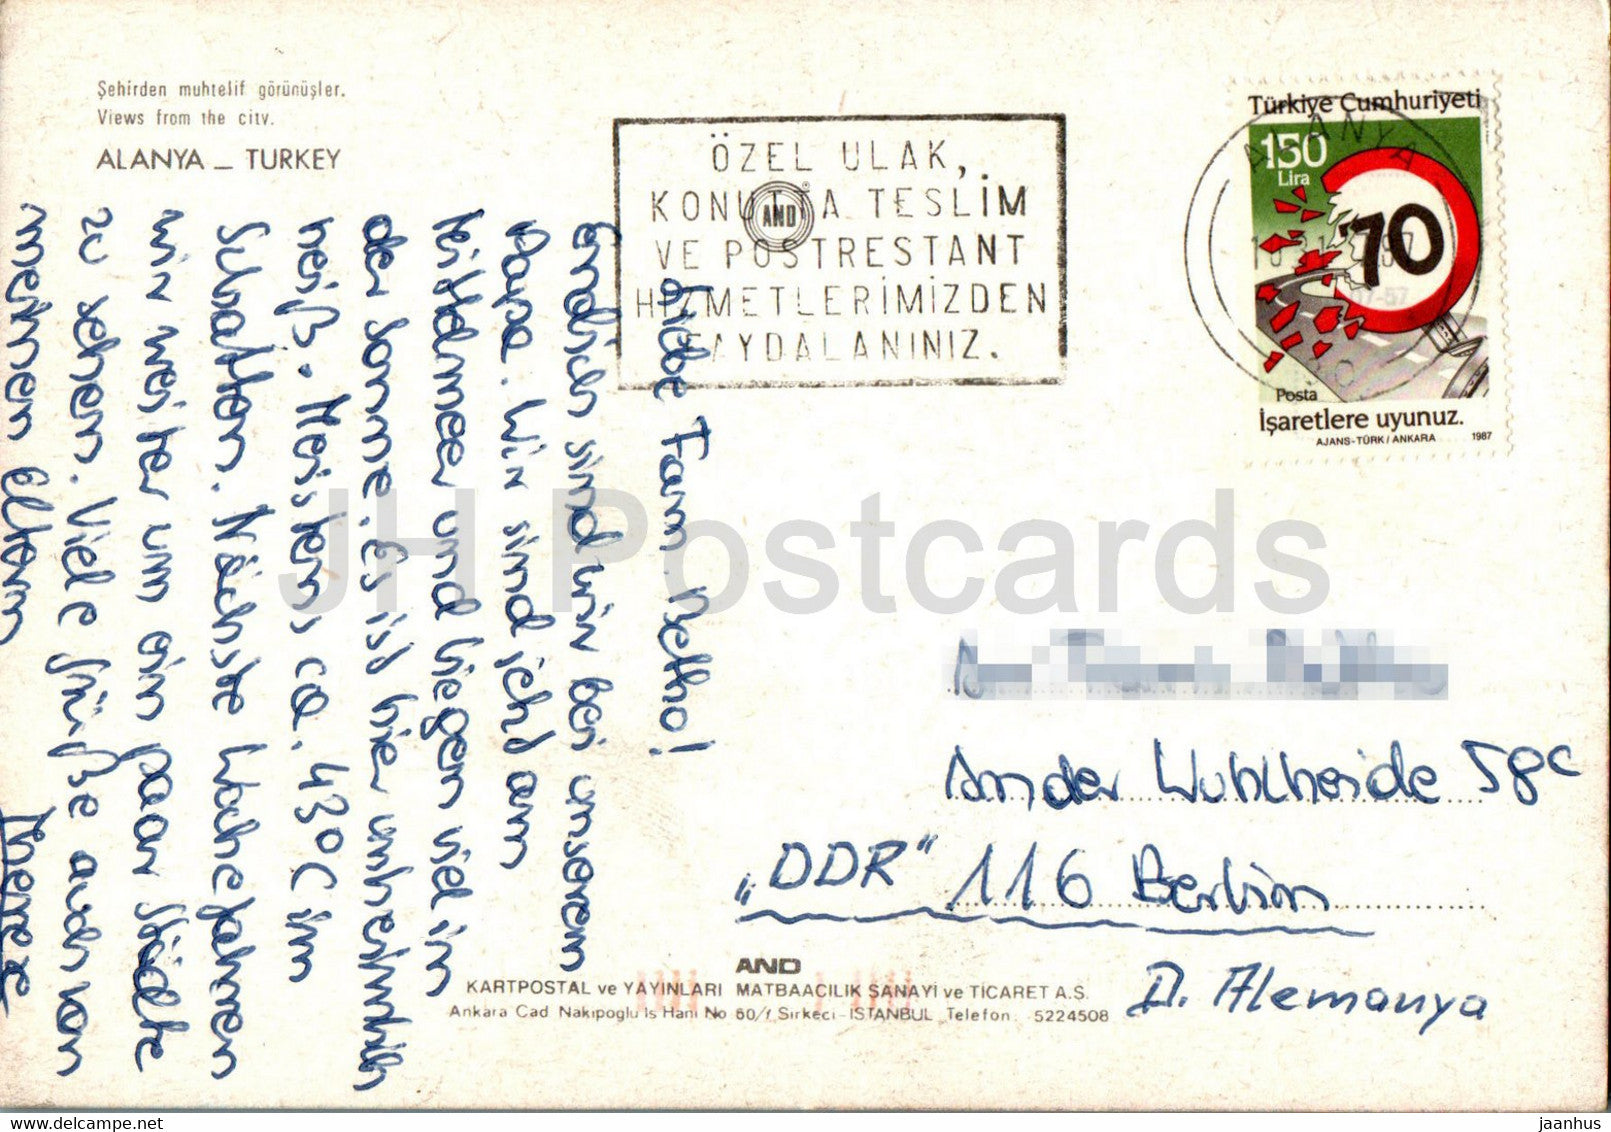 Şehirden muhtelif görünüşler.
Views from the city.
ALANYA _ TURKEY
ÖZEL ULAK,
KONUTTA TESLİM
VE POSTRESTANT
HİZMETLERİMİZDEN
FAYDALANINIZ.
AND
Türkiye Cumhuriyeti
150
Lira
70
Posta
İşaretlere uyunuz.
AJANS-TÜRK / ANKARA 1987
ALANYA
Liebe Fam. Netho!
Endlich sind wir bei unserem
Papa. Wir sind jeht am
Mittelmeer und liegen viel in
der Sonne. Es ist hier unheimlich
heiß. Meistens ca. 43°C im
Schatten. Nächste Woche fahren
wir weiter um ein paar Städte
zu sehen. Viele Grüße auch von
meinen Eltern
JH Postcards
An der Wuhlheide 58c
„DDR" 116 Berlin
D. Alemanya
AND
KARTPOSTAL ve YAYINLARI MATBAACILIK SANAYİ ve TİCARET A.Ş.
Ankara Cad Nakipoglu Is Hanı No 60/1 Sirkeci-İSTANBUL Telefon: 5224508
jaanhus
www.delcampe.net